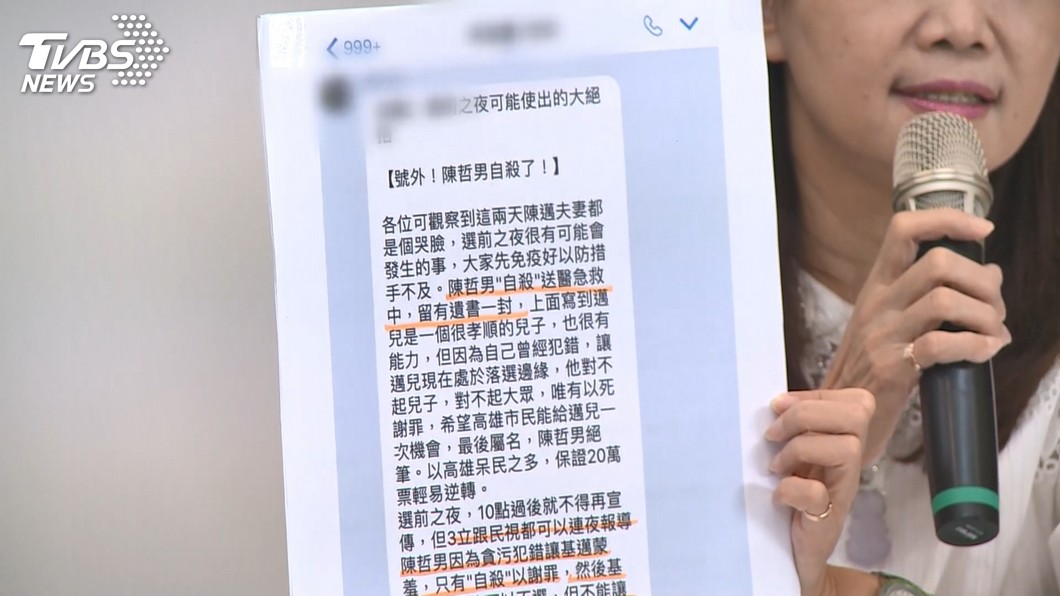 TVBS
NEWS
999+
之夜可能使出的大絕
【號外！陳哲男自殺了！】
各位可觀察到這兩天陳邁夫妻都
是個哭臉，選前之夜很有可能會
發生的事，大家先免疫好以防措
手不及。陳哲男"自殺"送醫急救
中，留有遺書一封，上面寫到邁
兒是一個很孝順的兒子，也很有
能力，但因為自己曾經犯錯，讓
邁兒現在處於落選邊緣，他對不
起兒子，對不起大眾，唯有以死
謝罪，希望高雄市民能給邁兒一
次機會，最後屬名，陳哲男絕
筆。以高雄呆民之多，保證20萬
票輕易逆轉。
選前之夜，10點過後就不得再宣
傳，但3立跟民視都可以連夜報導
陳哲男因為貪污犯錯讓基邁蒙
羞，只有"自殺"以謝罪，然後基
可以不選，但不能讓